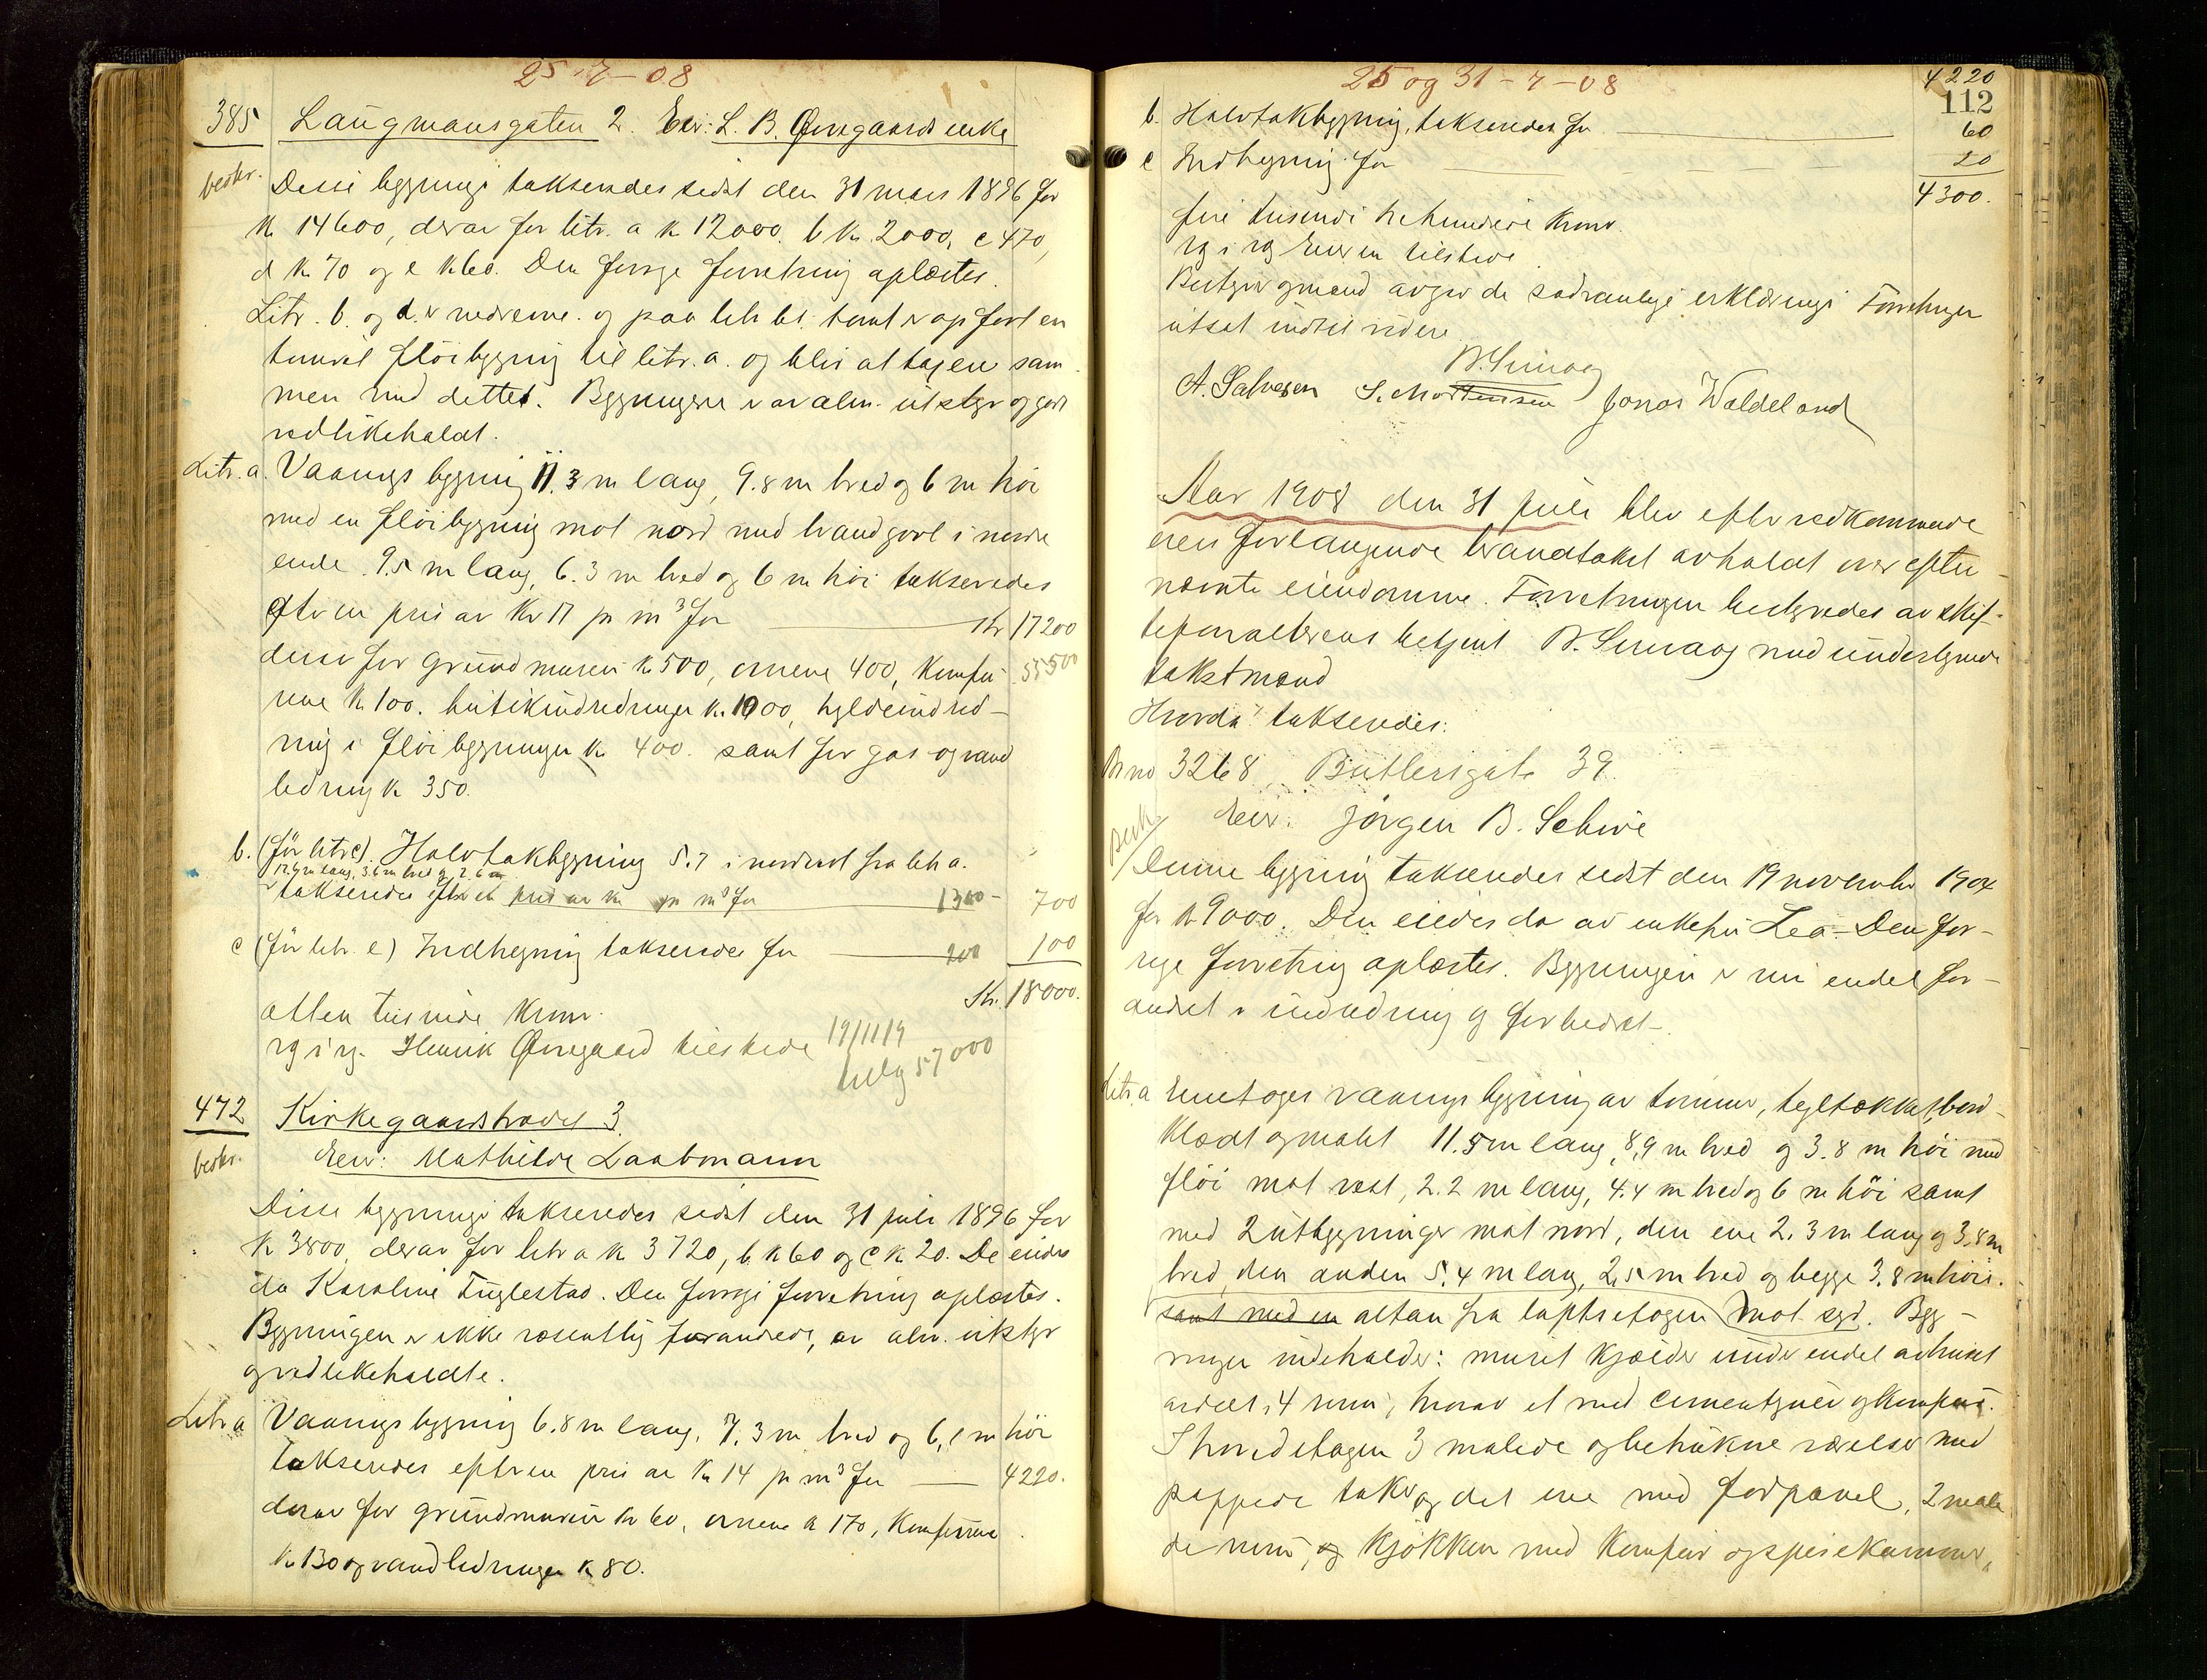 25-7-08
385 Laugmansgaten 2. Eier: L. B. Øvregaards enke
beskr. Disse bygninge takseredes sidst den 31 mars 1896 for
kr 14600, derav for litr. a kr 12000. b kr. 2000, c 470,
d kr 70 og e kr 60. Den forrige forretning oplæstes.
Litr. b. og d. er nedrevne. og paa litr bs. tomt er opført en
tomvis fløibygning til litr. a. og blir at ta en sam
men med dette. Bygningene er av alm. utstyr og godt
vedlikeholdt.
Litr. a. Vaaningsbygning 11.3 m lang, 9.8 m bred og 6 m høi
med en fløibygning mot nord med brandgavl i nordre
ende 9.5 m lang, 6.3 m bred og 6 m høi takseredes
efter en pris av Kr 17 pr m³ for Kr 17200
derav for grundmuren kr 500, ovnene 400, komfu- 55500
rene kr 100. butikindredninger kr. 1000, hyldeindred-
ning i fløibygningen kr 400. samt for gas- og vand
ledning kr 350.
b. (før litr c). Halvtakbygning 5.7 i nordost fra litr a.
12.9 m lang, 3.6 m bred og 2.6 m
takseredes efter en pris av kr pr m³ for 1300- 700
c (før litr. e) Indhegning takseredes for 200 100
Kr. 18000.
atten tusinde kroner.
rg i rg. Henrik Øvregaard tilstede 19/11/19
57000
472 Kirkegaardstrædet 3.
beskr. Eier: Mathilde Laabmann
Disse bygninge takseredes sidst den 31 juli 1896 for
kr 3800, derav for litr a kr 3720, b. kr 60 og c kr 20. De eiedes
da Karoline Tuglestad. Den forrige forretning oplæstes.
Bygningen er ikke væsentlig forandrede, av alm. utstyr
og vedlikeholdte.
Litr a Vaaningsbygning 6.8 m lang, 7.3 m bred og 6,1 m høi
takseredes efter en pris av Kr 14 pr m³ for 4220.
derav for grundmuren kr 60, ovnene kr 170, komfurene
kr 130 og vandledningen kr 80.
25 og 31-7-08
4220
112
b. Halvtakbygning, takseredes for 60
c Indhegning for 20
4300.
fire tusinde trehundrede kroner.
rg i rg Eieren tilstede.
Bestyrer og mænd avgav de sedvanlige erklæringer Forretningen
utsat indtil videre
A. Salvesen S. Mortensen Jonas Waldeland
Aar 1908 den 31 juli blev efter vedkommende
eiers forlangende brandtakst avholdt over efter-
nævnte eiendomme. Forretningen bestyredes av skif-
teforvalterens betjent med undertegnede
takstmænd
Hvorda takseredes:
Br no 3268. Butlersgate 39.
Besk. Eier: Jørgen B. Schive
Denne bygning takseredes sidst den 19 november 1904
for kr 9000. Den eiedes da av enkefru Lea - Den for-
rige forretning oplæstes. Bygningen er nu endel for-
andret i indredning og forbedret.
Litr. a Enetages vaaningsbygning av tømmer, tegltækket, bord-
klædt og malet 11.5 m lang, 8,9 m bred og 3.8 m høi med
fløi mot vest, 2.2 m lang, 4.4 m bred og 6 m høi samt
med 2 utbygninger mot nord, den ene 2.3 m lang og 3,8 m
bred, den anden 5.4 m lang, 2,5 m bred og begge 3.8 m høie.
samt med en altan fra loftsetagen mot syd. Byg-
ningen indeholder: muret kjælder under endel av huset
avdelt i 4 rum, hvorav et med cementgulv og komfur.
I hovedetagen 3 malede og betrukne værelser med
pappede taker, og det ene med forpanel, 2 male
de rum, og kjøkken med komfur og spisekammer,